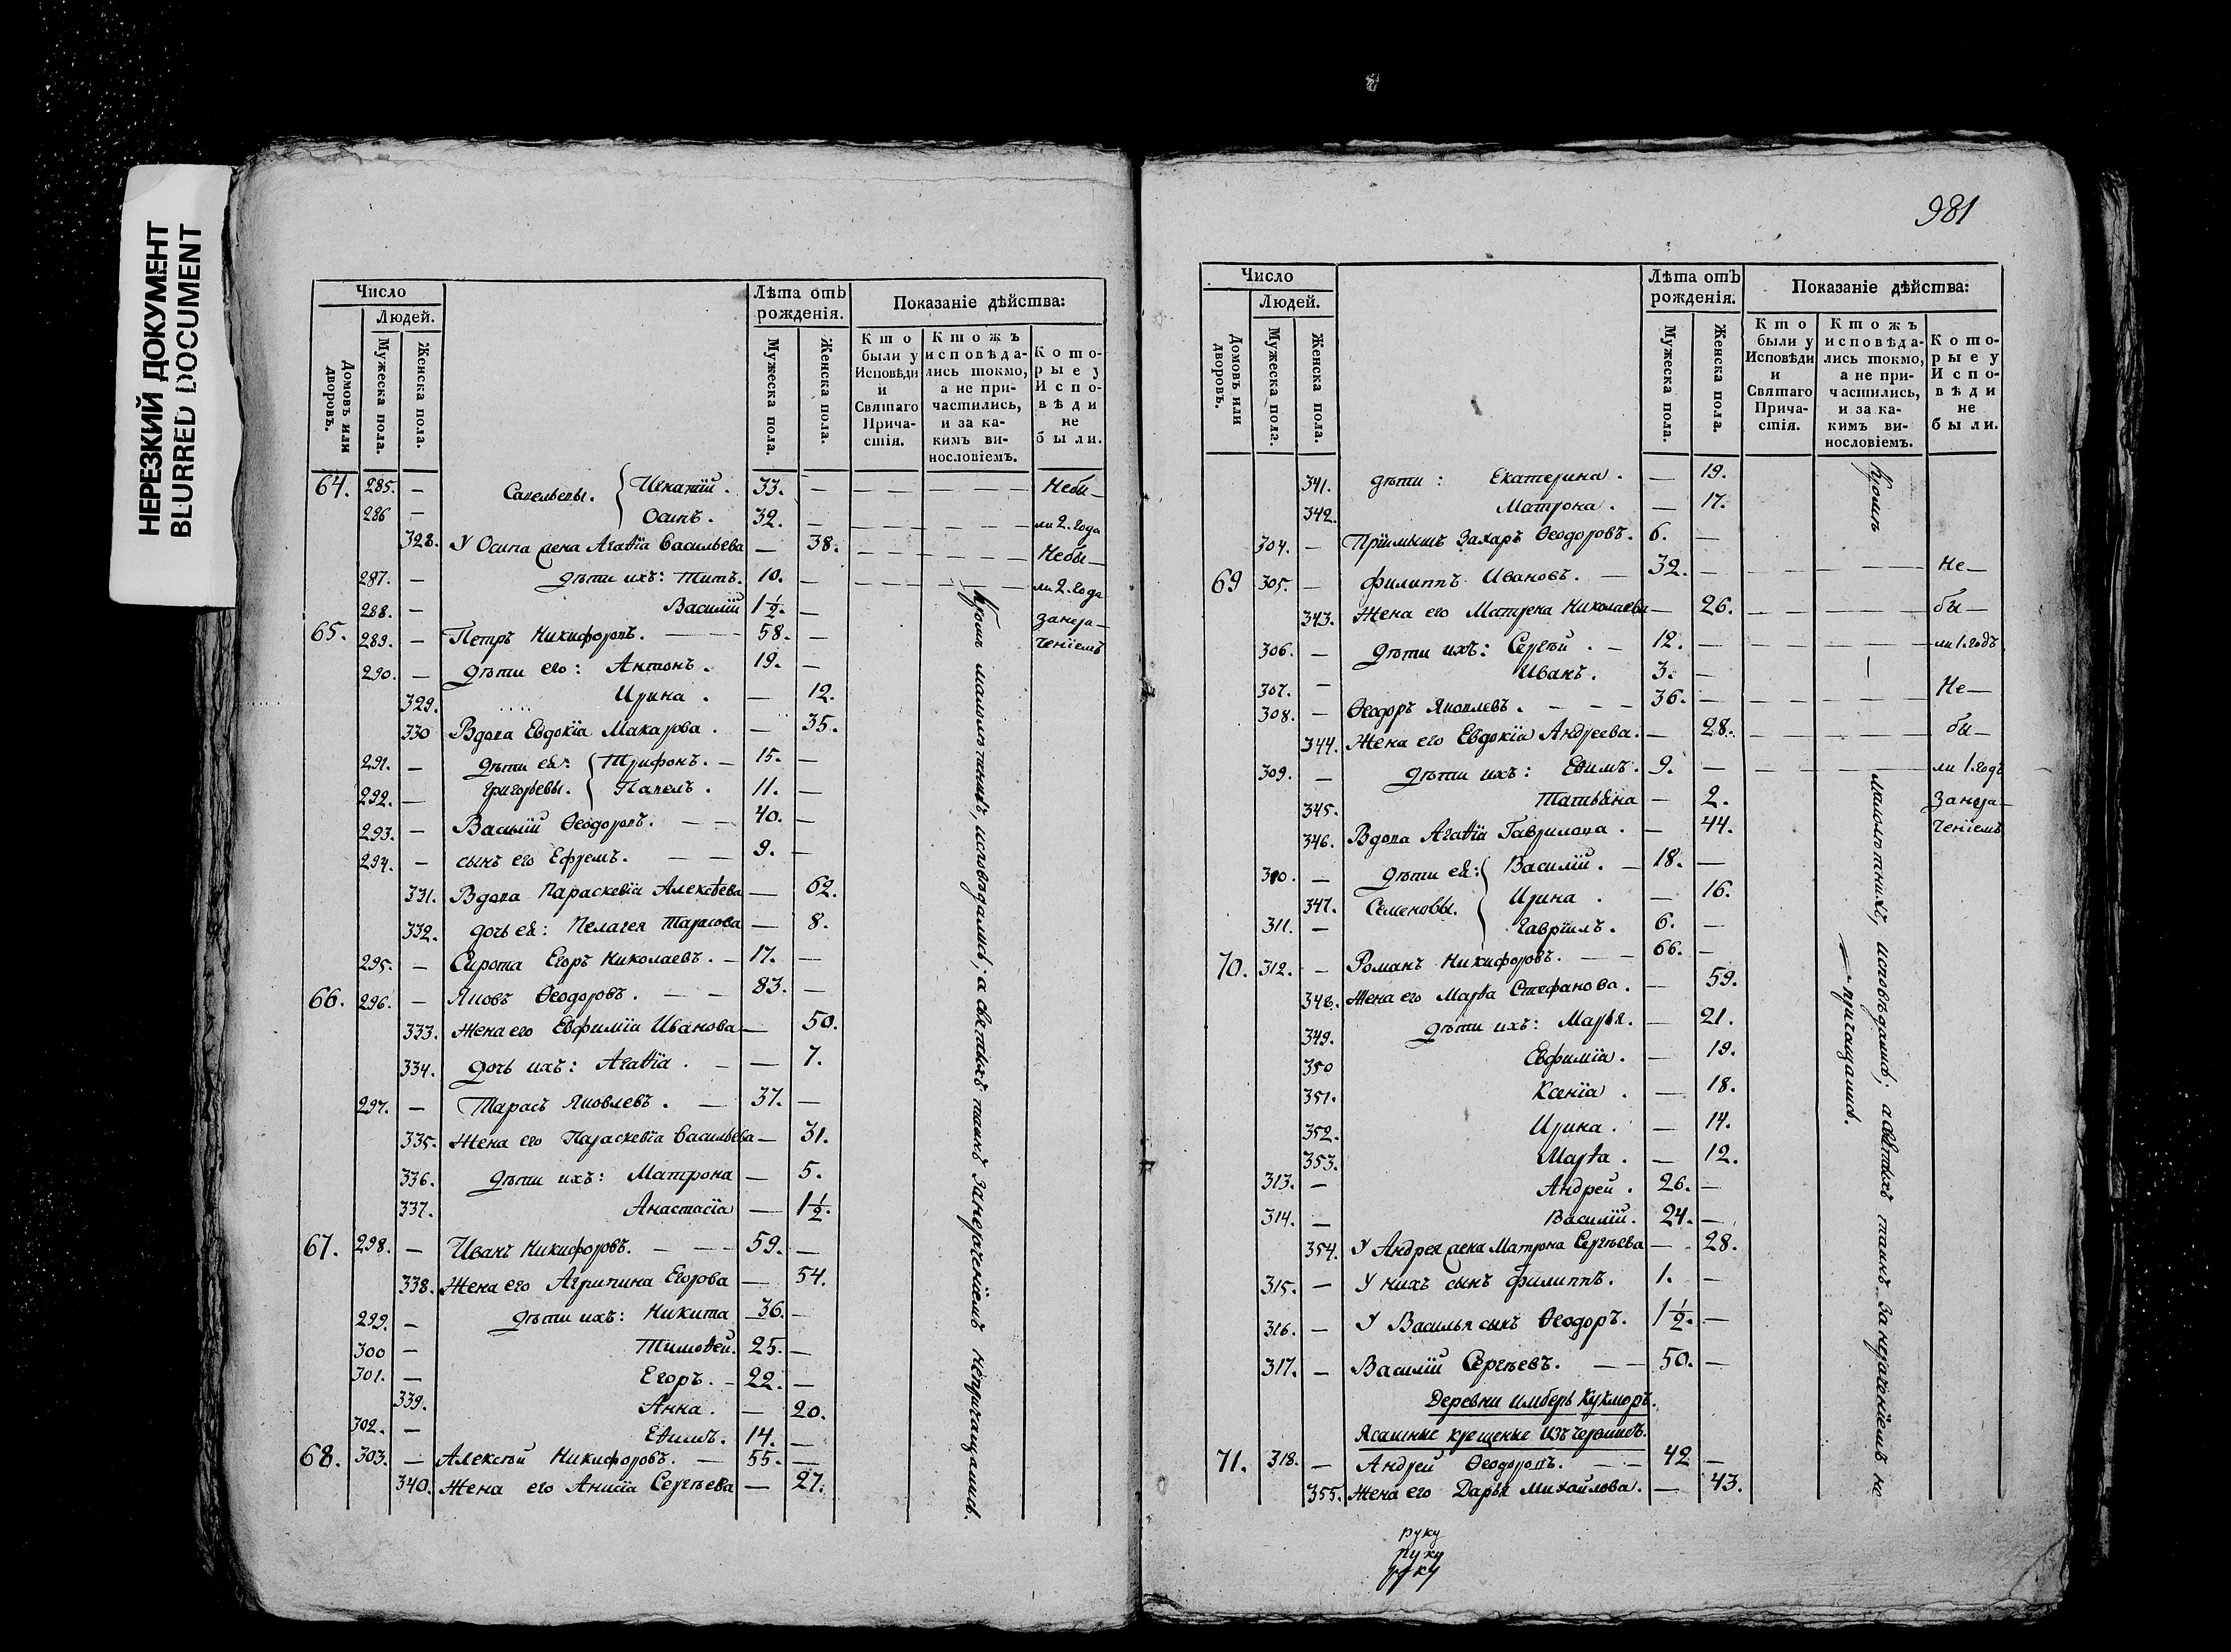 НЕРЕЗКИЙ ДОКУМЕНТ
BLURRED DOCUMENT
Число
Людей.
Домовъ или дворовъ.
Мужеска пола.
Женска пола.
Лѣта отъ рожденія.
Мужеска пола.
Женска пола.
Показаніе дѣйства:
Кто были у Исповѣди и Святаго Причастія.
Ктожъ исповѣдались токмо, а не причастились, и за какимъ винословіемъ.
Которые у Исповѣди не были.
64. 285. — Савельевы. { Игнатій. 33. — — — — Небы—
286 — Осипъ. 32. — — — — ли 2. года
328. У Осипа жена Агаѳїа Васильева — 38. — — — Небы—
287. — Дѣти ихъ: Титъ. 10. — — — — ли 2. года
288. — Василїй 1 1/2. — занера—
65. 289. — Петръ Никифоровъ. — 58. — ченїемъ
290. — Дѣти его: Антонъ. 19. —
329. Ирина. — 12.
330 Вдова Евдокїа Макарова. — 35.
291. — Дѣти ея: { Трифонъ. — 15. —
292. — Григорьевы. { Павелъ. 11. —
293. — Василїй Ѳеодоровъ. — 40. —
294. — сынъ его Ефремъ. — 9. —
331. Вдова Параскевїа Алексѣева — 62.
332. дочь ея: Пелагея Тарасова — 8.
295. — Сирота Егоръ Николаевъ. — 17. —
66. 296. — Яковъ Ѳеодоровъ. — 83. —
333. Жена его Евфимїа Иванова — 50.
334. Дочь ихъ: Агаѳїа. — 7.
297. — Тарасъ Яковлевъ. — 37. —
335. Жена его Параскевїа Васильева — 31.
336. Дѣти ихъ: Матрона — 5.
337. Анастасїа — 1 1/2.
67. 298. — Иванъ Никифоровъ. — 59. —
338. Жена его Агрипина Егорова — 54.
299. — Дѣти ихъ: Никита 36. —
300 — Тимоѳей. 25. —
301. — Егоръ. — 22. —
339. Анна. — 20.
302. — Еѳимъ. 14. —
68. 303. — Алексѣй Никифоровъ. — 55. —
340. Жена его Анисїа Сергѣева — 27.
Кромѣ малолѣтныхъ, исповѣдались; а святыхъ таинъ занераченїемъ непричащались.
981
Число
Людей.
Домовъ или дворовъ.
Мужеска пола.
Женска пола.
Лѣта отъ рожденія.
Мужеска пола.
Женска пола.
Показаніе дѣйства:
Кто были у Исповѣди и Святаго Причастія.
Ктожъ исповѣдались токмо, а не причастились, и за какимъ винословіемъ.
Которые у Исповѣди не были.
341. дѣти: Екатерина. — 19.
342. Матрона. — 17.
304. — Прїимышъ Захаръ Ѳеодоровъ. 6. —
69 305. — Филиппъ Ивановъ. — 32. — — — — Не—
343. Жена его Матрена Николаева — 26. — — — бы—
306. — Дѣти ихъ: Сергѣй. — 12. — — — — ли 1. годъ
307. — Иванъ. 3. —
308. — Ѳеодоръ Яковлевъ. — 36. — — — — Не—
344. Жена его Евдокїа Андреева. — 28. — — — бы—
309. — Дѣти ихъ: Еѳимъ. 9. — — — — ли 1. годъ
345. Татьяна — 2. Занера—
346. Вдова Агаѳїа Гаврилова. — 44. ченїемъ
310. — Дѣти ея: { Василїй. — 18. —
347. Семеновы. { Ирина. — 16.
311. — Гаврїилъ. 6. —
70. 312. — Романъ Никифоровъ. — 66. —
348. Жена его Марѳа Стефанова. — 59.
349. Дѣти ихъ: Марья. — 21.
350 Евфимїа. — 19.
351. Ксенїа. — 18.
352. Ирина. — 14.
353. Марѳа. — 12.
313. — Андрей. 26. —
314. — Василїй. 24. —
354. У Андрея жена Матрона Сергѣева — 28.
315. — У нихъ сынъ Филиппъ. 1. —
316. — У Василья сынъ Ѳеодоръ. 1 1/2. —
317. — Василїй Сергѣевъ. — 50. —
Деревни Имберь Кукморъ.
Ясашные крещеные изъ черемисъ.
71. 318. — Андрей Ѳеодоровъ. — 42 —
355. Жена его Дарья Михайлова. — 43.
Кромѣ малолѣтныхъ, исповѣдались; а святыхъ таинъ занераченїемъ не
причащались.
руку
руку
руку